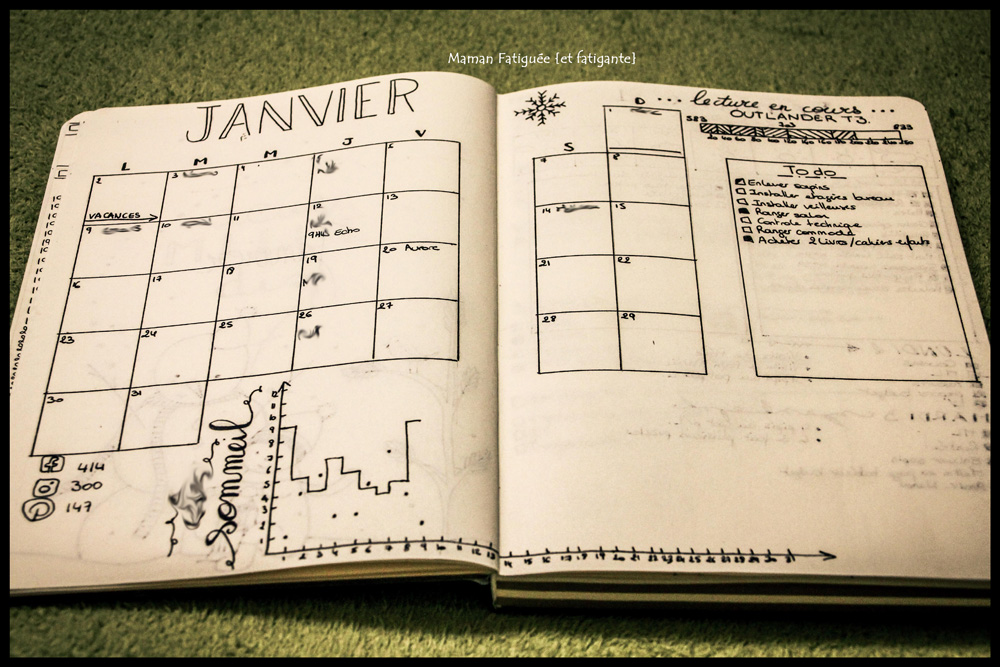 Maman Fatiguée {et fatigante}
JANVIER
L M M J V
2 3 4 6
VACANCES
9 10 11 12 13
9H45 Echo
16 17 18 19 20 Aurore
23 24 25 26 27
30 31
414
300
147
Sommeil
S D
1
7 8
14 15
21 22
28 29
... lecture en cours ...
OUTLANDER T3.
583 833
To do
Enlever sapins
Installer étagères bureau
Installer veilleuses
Ranger salon
Contrôle technique
Ranger commode
Acheter 2 livres/cahiers enfants
1 2 3 4 5 6 7 8 9 10 11 12 13 14 15 16 17 18 19 20 21 22 23 24 25 26 27 28 29 30 31